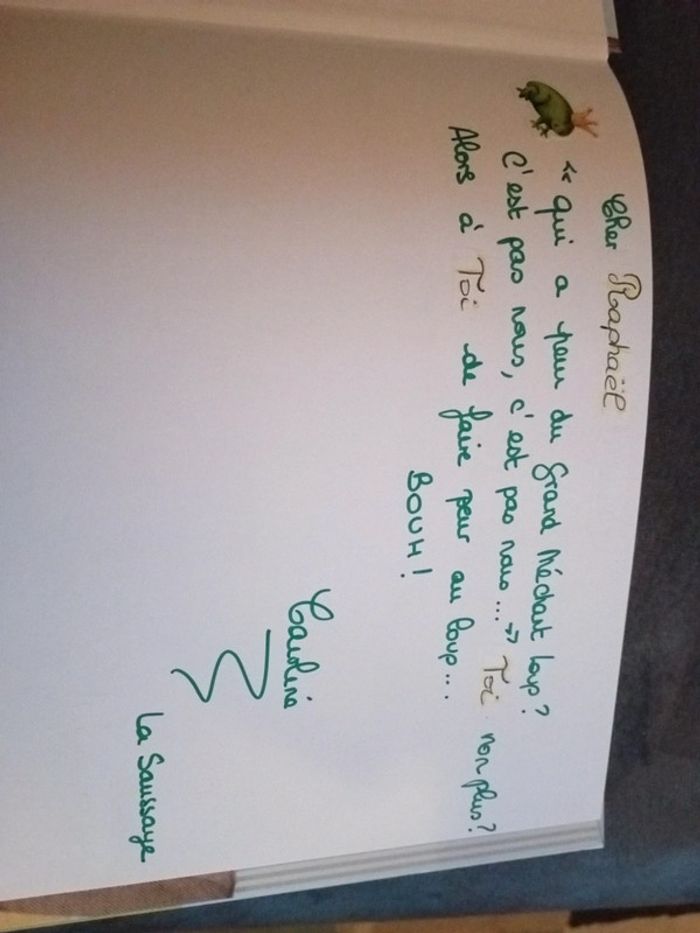 Cher Raphaël
" qui a peur du Grand Méchant Loup ?
C'est pas nous, c'est pas nous... " Toi non plus ?
Alors à Toi de faire peur au loup...
BOUH !
Caroline
La Saussaye